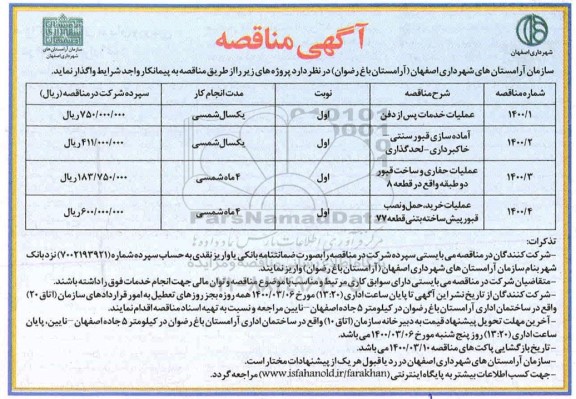 آگهی مناقصه
شهرداری اصفهان
سازمان آرامستان های
شهرداری اصفهان
سازمان آرامستان های شهرداری اصفهان (آرامستان باغ رضوان) در نظر دارد پروژه های زیر را از طریق مناقصه به پیمانکار واجد شرایط واگذار نماید.
شماره مناقصه شرح مناقصه نوبت مدت انجام کار سپرده شرکت در مناقصه (ریال)
۱۴۰۰/۱ عملیات خدمات پس از دفن اول یکسال شمسی ۷۵۰/۰۰۰/۰۰۰ ریال
۱۴۰۰/۲ آماده سازی قبور سنتی خاکبرداری - لحدگذاری اول یکسال شمسی ۴۱۱/۰۰۰/۰۰۰ ریال
۱۴۰۰/۳ عملیات حفاری و ساخت قبور دو طبقه واقع در قطعه ۸ اول ۴ ماه شمسی ۱۸۳/۷۵۰/۰۰۰ ریال
۱۴۰۰/۴ عملیات خرید، حمل و نصب قبور پیش ساخته بتنی قطعه ۷۷ اول ۴ ماه شمسی ۶۰۰/۰۰۰/۰۰۰ ریال
ParsNamadData
تذکرات:
-شرکت کنندگان در مناقصه می بایستی سپرده شرکت در مناقصه را بصورت ضمانتنامه بانکی یا واریز نقدی به حساب سپرده شماره (۷۰۰۲۱۹۳۹۲۱) نزد بانک
شهر بنام سازمان آرامستان های شهرداری اصفهان (آرامستان باغ رضوان) واریز نمایند.
-متقاضیان شرکت در مناقصه می بایستی دارای سوابق کاری مرتبط و متناسب با موضوع مناقصه و توان مالی جهت انجام خدمات فوق را داشته باشند.
-شرکت کنندگان از تاریخ نشر این آگهی تا پایان ساعت اداری (۱۳:۲۰) مورخ ۱۴۰۰/۰۳/۰۶ همه روزه بجز روزهای تعطیل به امور قراردادهای سازمان (اتاق ۲۰)
واقع در ساختمان اداری آرامستان باغ رضوان در کیلومتر ۵ جاده اصفهان - نایین مراجعه و نسبت به تهیه اسناد مناقصه اقدام نمایند.
-آخرین مهلت تحویل پیشنهاد قیمت به دبیرخانه سازمان (اتاق ۱۰) واقع در ساختمان اداری آرامستان باغ رضوان در کیلومتر ۵ جاده اصفهان - نایین، پایان
ساعت اداری (۱۳:۲۰) روز پنج شنبه مورخ ۱۴۰۰/۰۳/۰۶ می باشد.
-تاریخ بازگشایی پاکت های مناقصه ۱۴۰۰/۰۳/۱۰ می باشد.
-سازمان آرامستان های شهرداری اصفهان در رد یا قبول هر یک از پیشنهادات مختار است.
-جهت کسب اطلاعات بیشتر به پایگاه اینترنتی (www.isfahanold.ir/farakhan) مراجعه گردد.